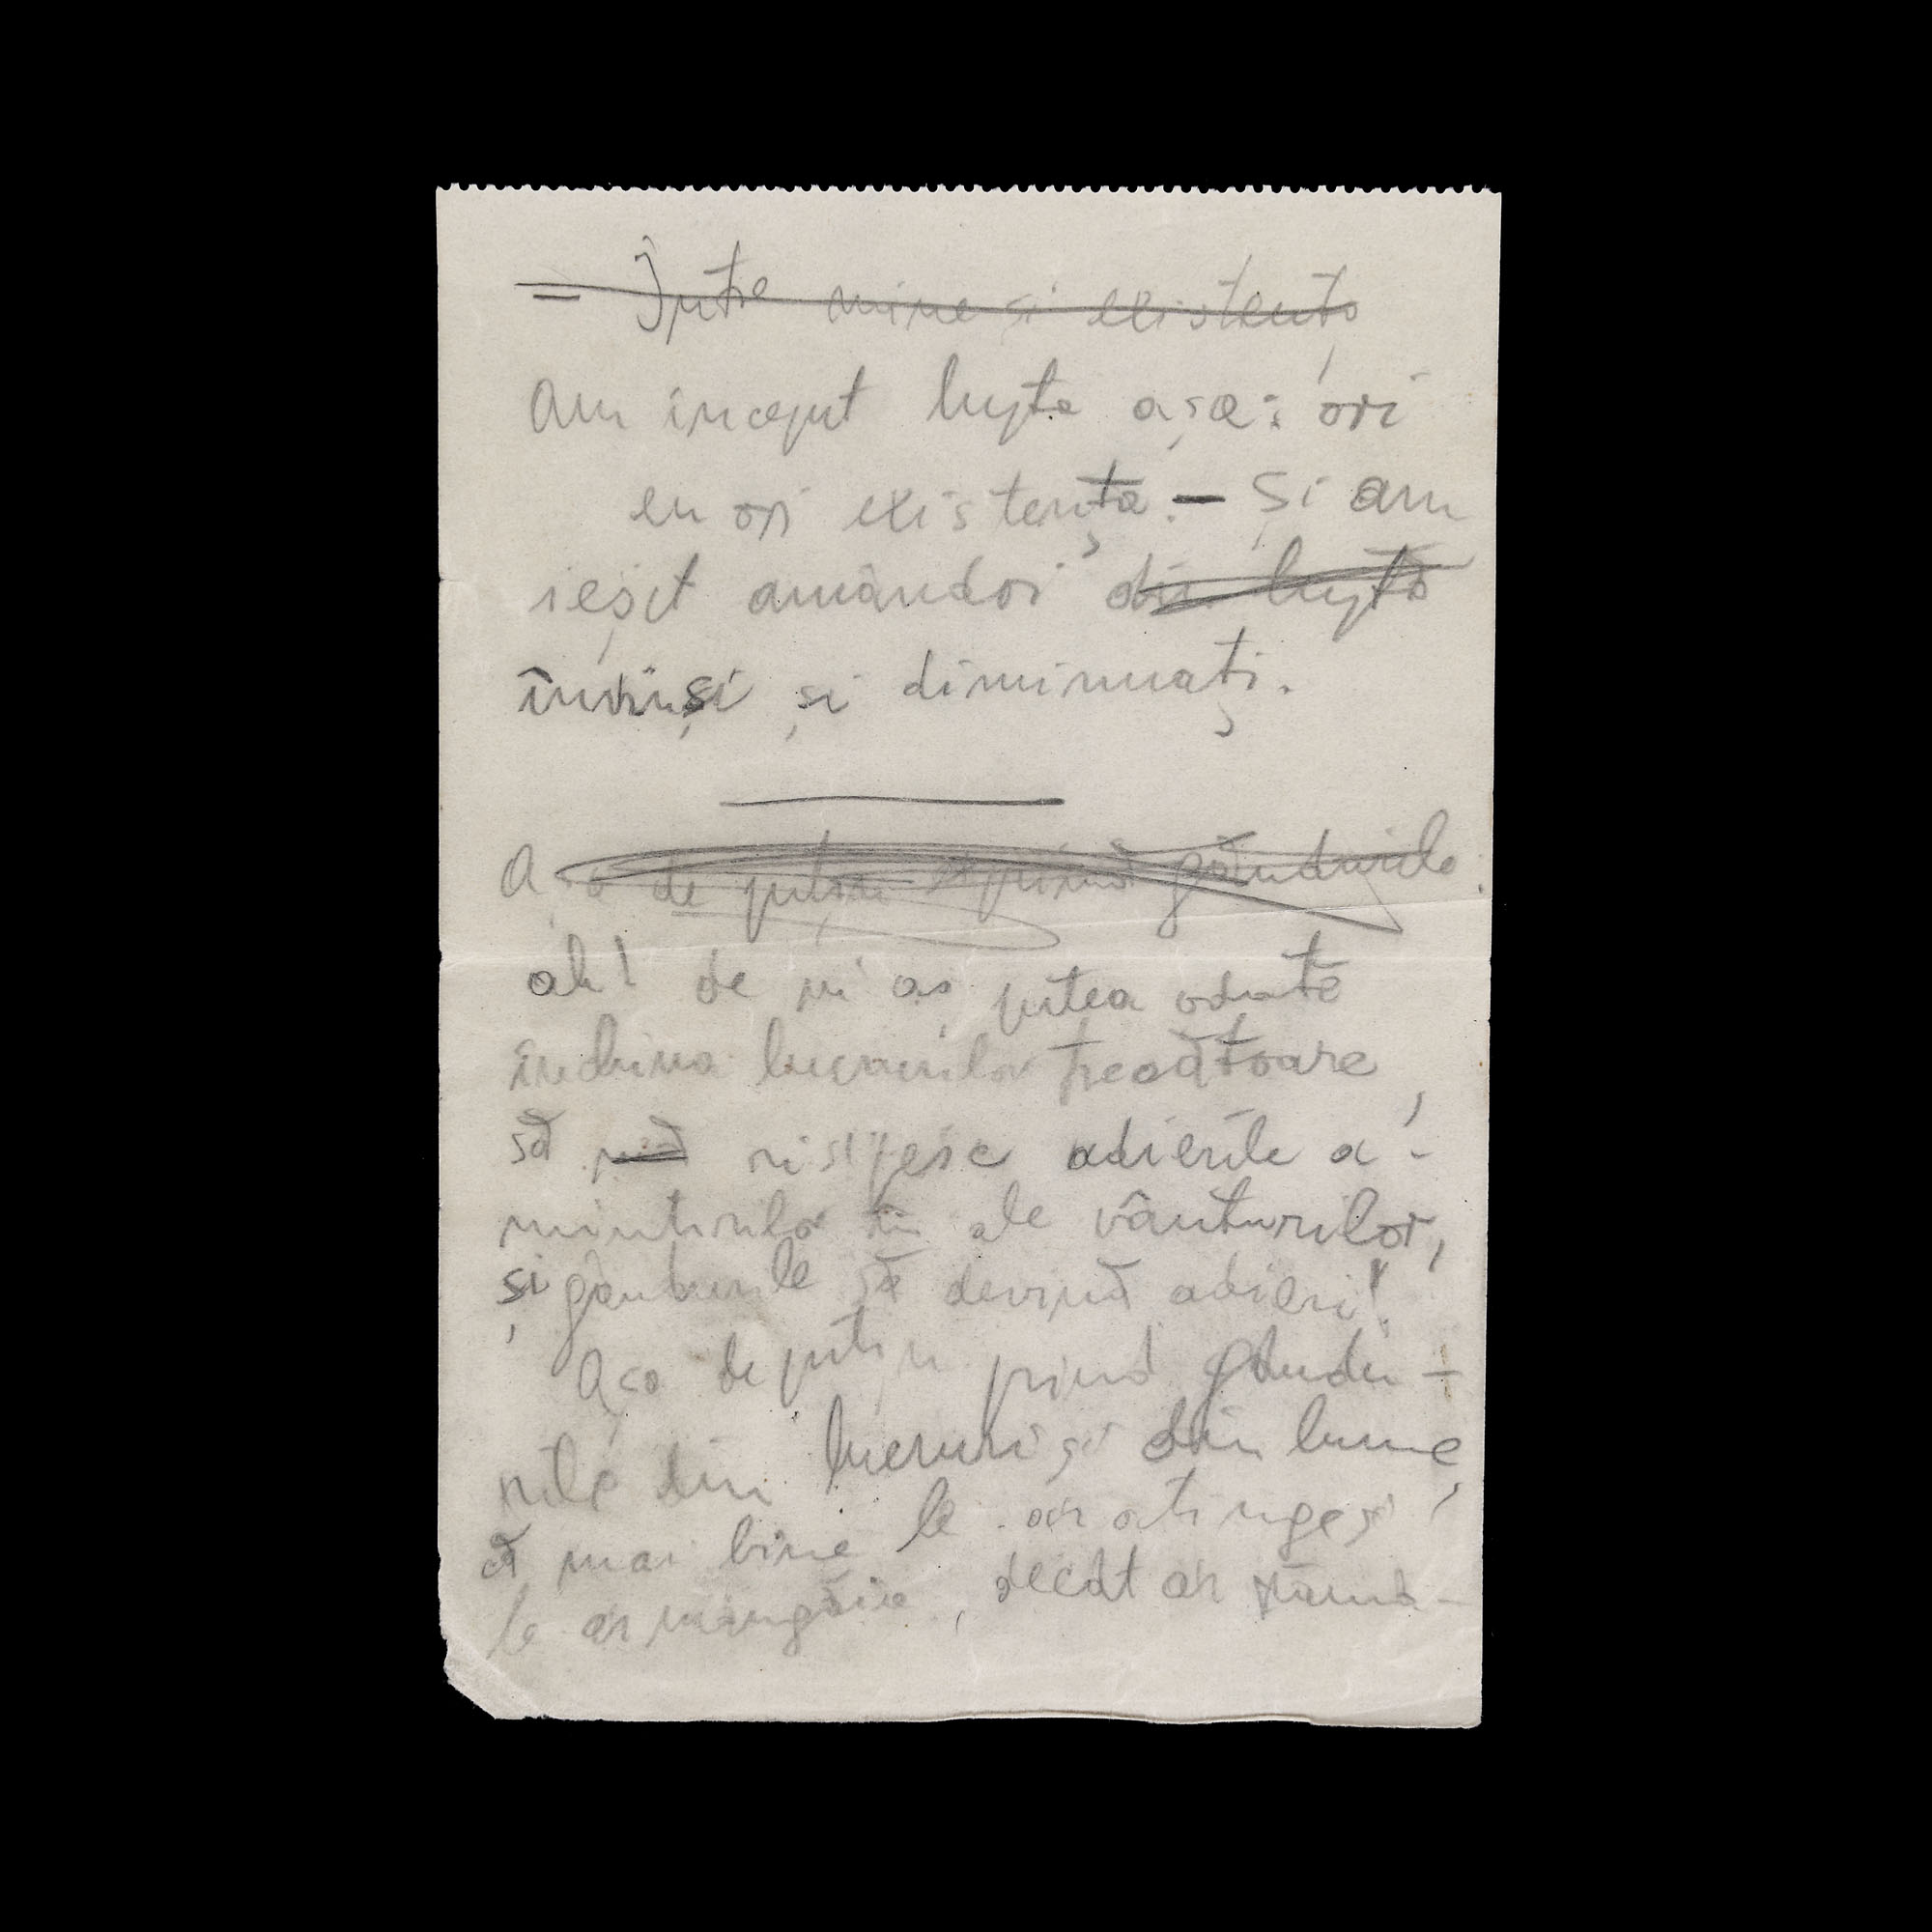 – Între mine și existență
Am început lupta așa: ori
eu ori existența. – Și am
ieșit amândoi din luptă
învinși și diminuați.
Așa de puțin exprimă gândurile
ah! de mi aș putea odată
îndrina lucrurilor trecătoare,
să risipesc adierile a-
mintirilor în ale vânturilor,
și gândurile să devină adieri!
Așa de puțin prind gându-
rile din lucruri și din lume,
că mai bine le-ar atinge și
le ar mângâia, decât ar rămâ-